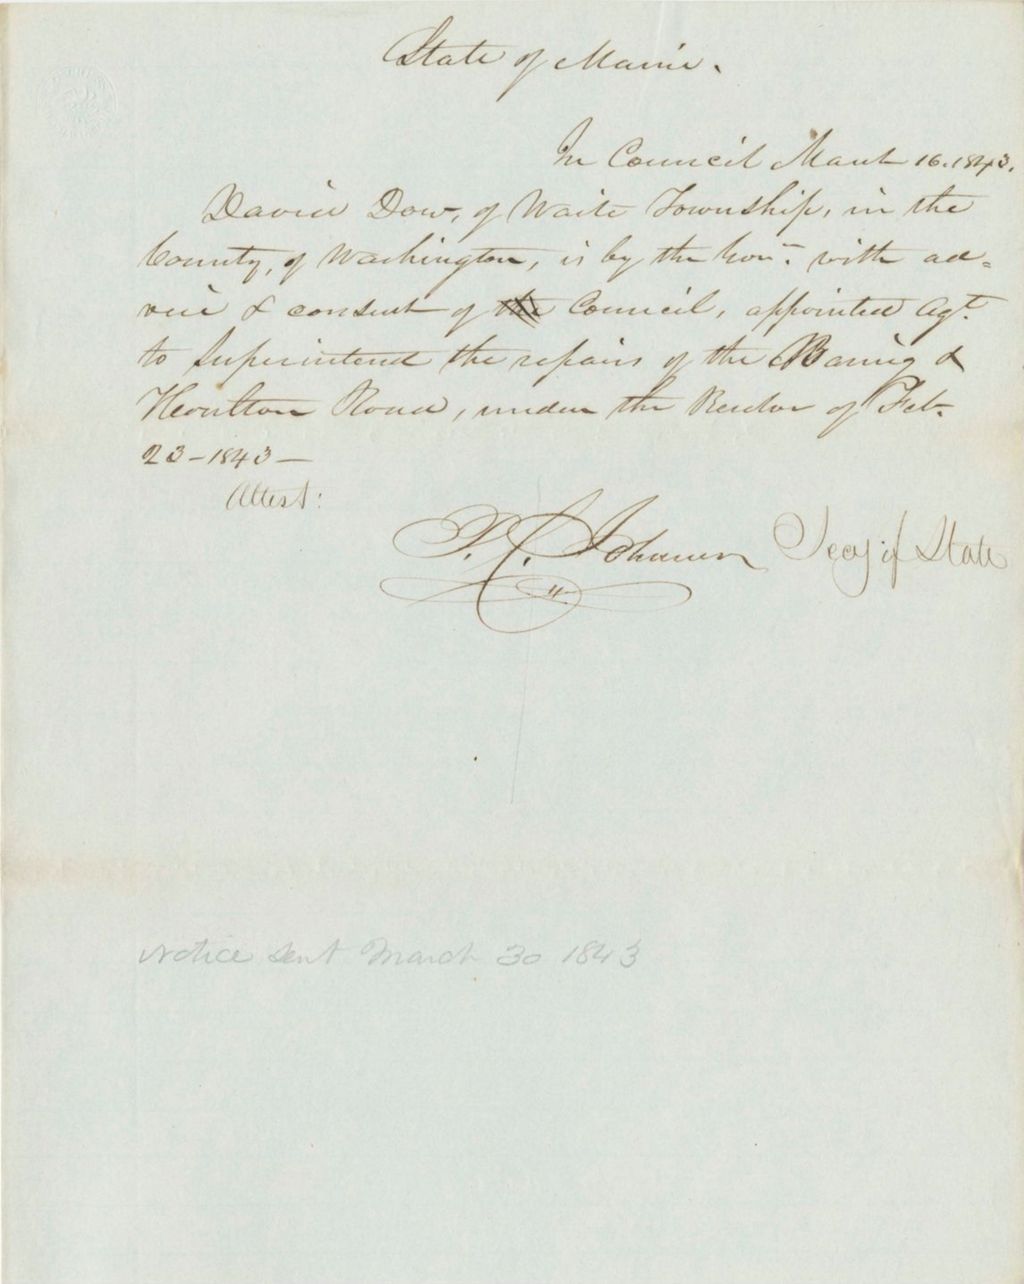 State of Maine.
In Council March 16. 1843.
David Dow, of Waite Township, in the
County, of Washington, is by the Gov.r with ad=
vice & consent of the Council, appointed Agt.
to Superintend the repairs of the Baring &
Houlton Road, under the Resolve of Feb.
23 - 1843 -
Attest:
P. C. Johnson Secy of State
Notice sent March 30 1843